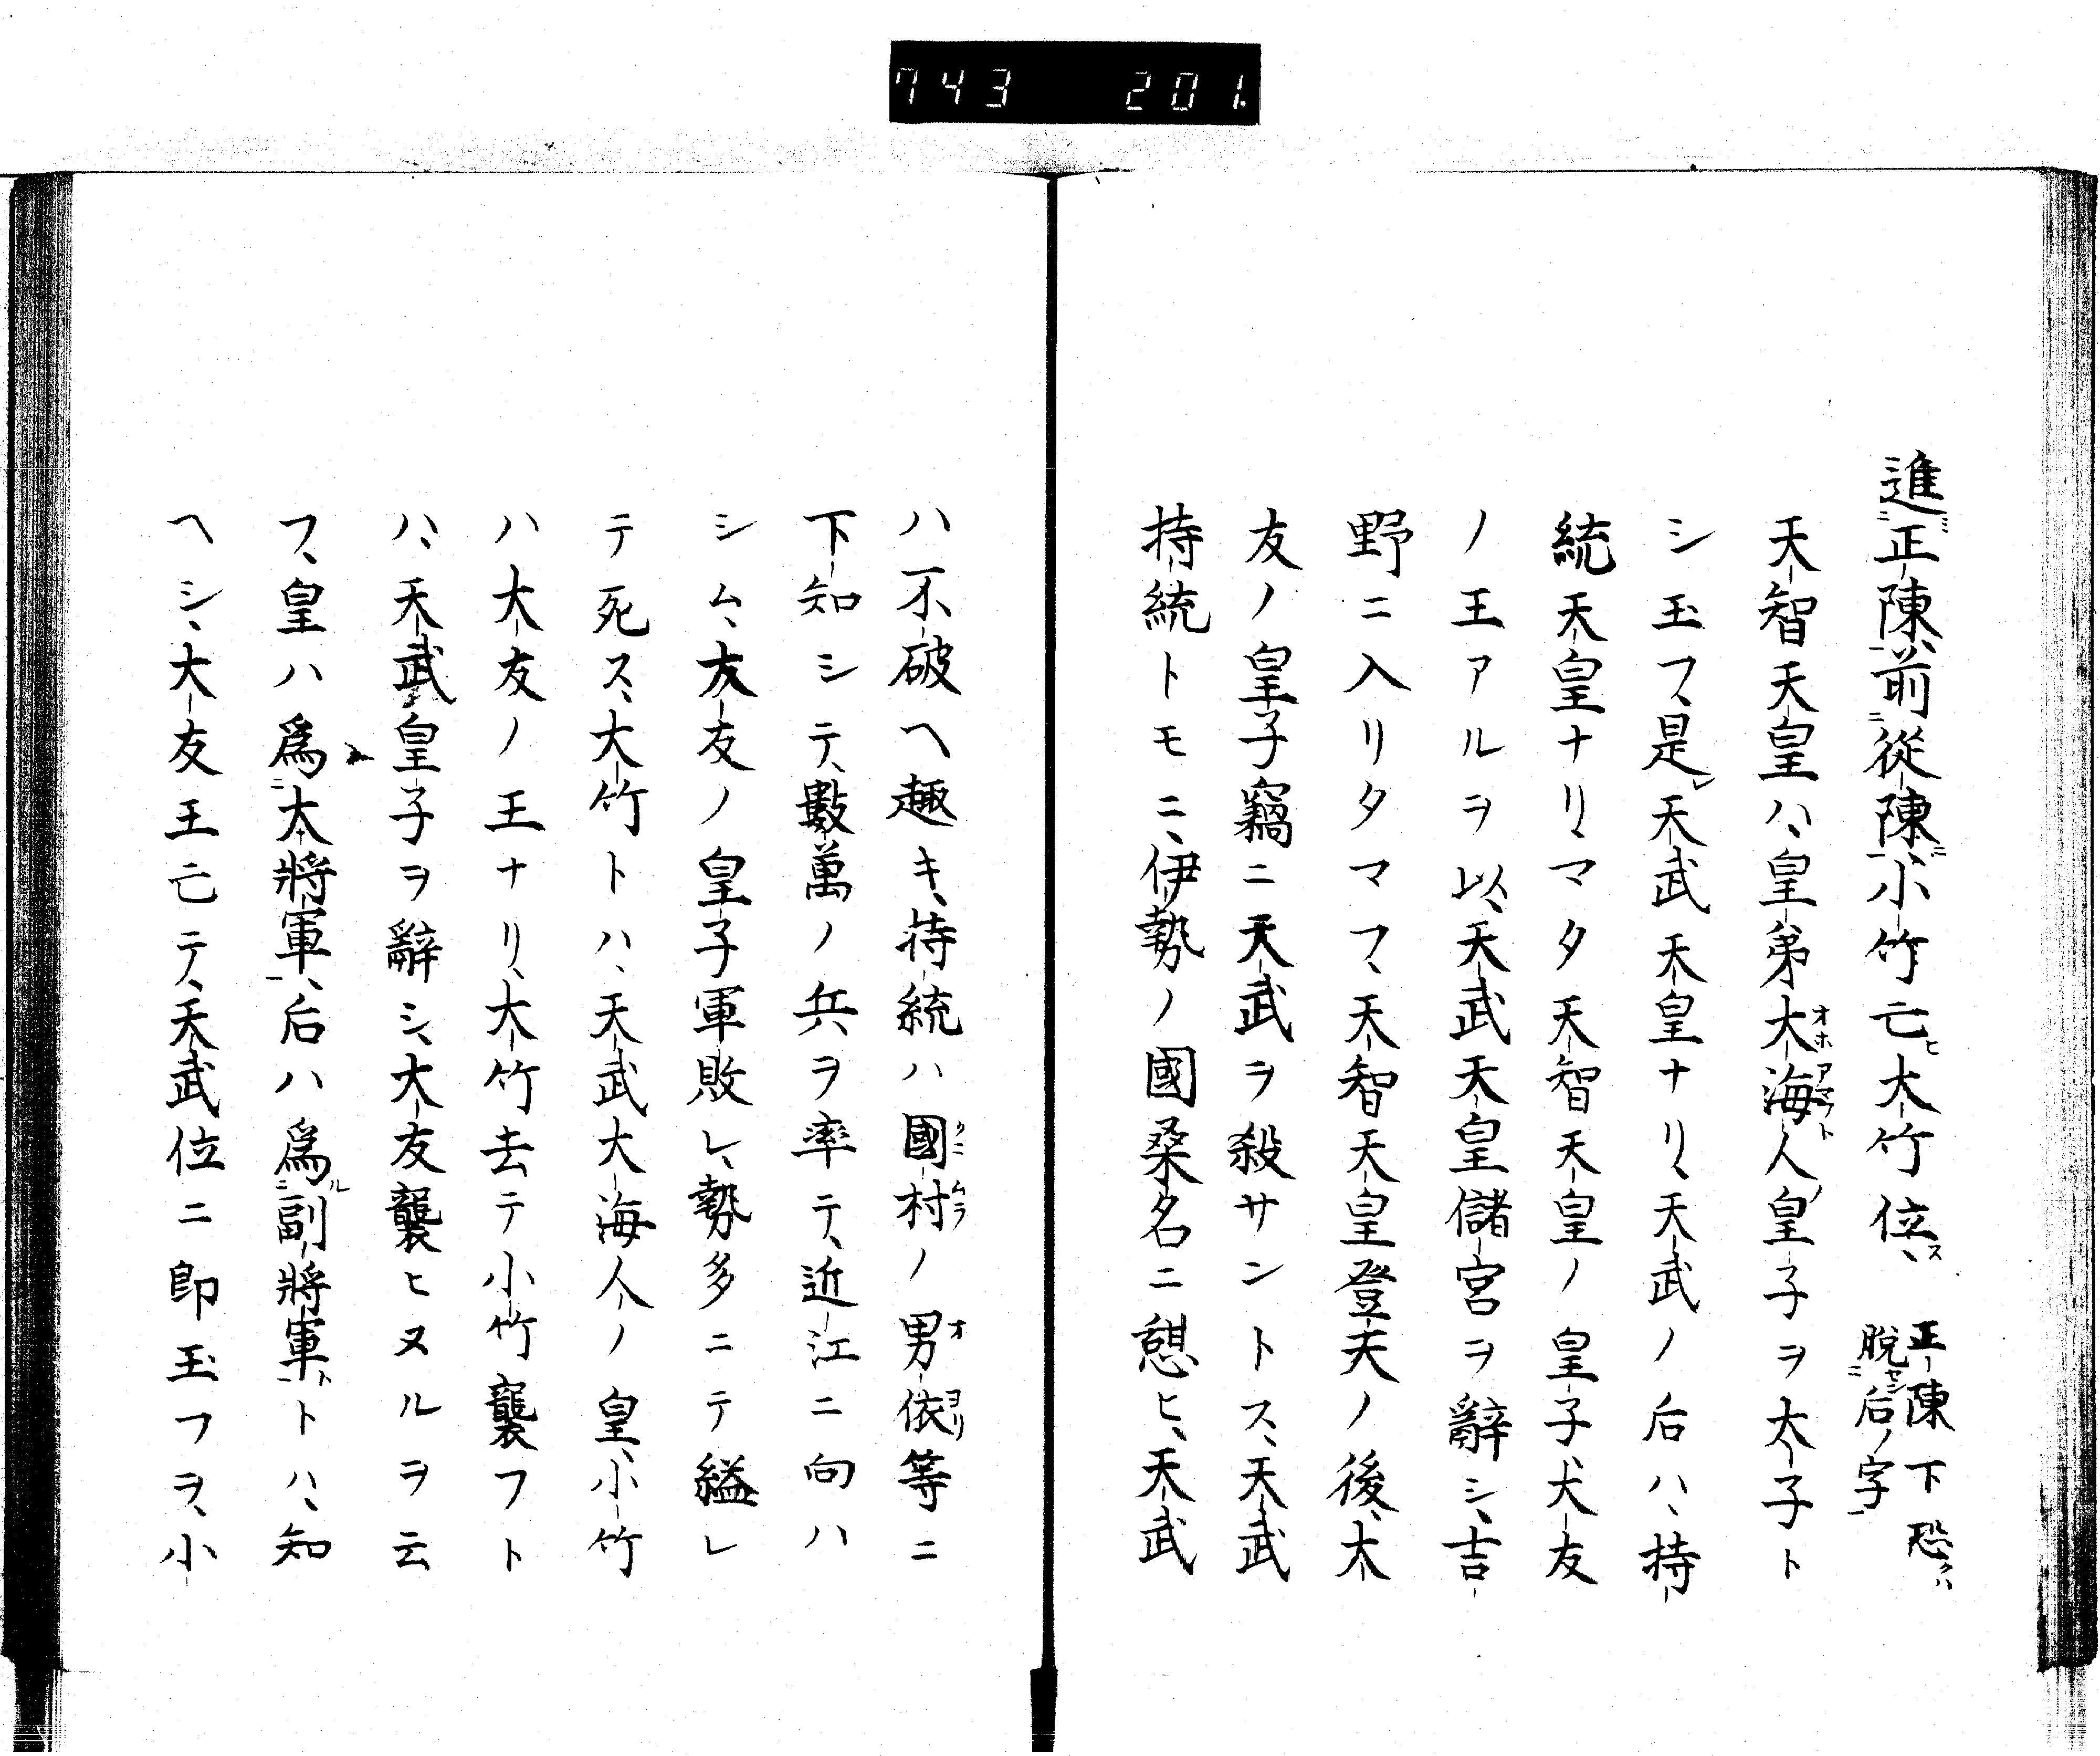 743 201.
進正陳前從陳小竹亡大竹位、正陳下恐クハ
脫后ノ字
天智天皇ハ、皇弟大海人皇子ヲ太子ト
シ玉フ、是天武天皇ナリ、天武ノ后ハ、持
統天皇ナリ、マタ天智天皇ノ皇子大友
ノ王アルヲ以、天武天皇儲宮ヲ辭シ、吉
野ニ入リタマフ、天智天皇登天ノ後、大
友ノ皇子竊ニ天武ヲ殺サントス、天武
持統トモニ、伊勢ノ國桑名ニ憇ヒ、天武
ハ不破ヘ趣キ、持統ハ國村ノ男依等ニ
下知シテ、數萬ノ兵ヲ率テ、近江ニ向ハ
シム、大友ノ皇子軍敗レ、勢多ニテ縊レ
テ死ス、大竹トハ、天武大海人ノ皇、小竹
ハ大友ノ王ナリ、大竹去テ小竹襲フト
ハ、天武皇子ヲ辭シ、大友襲ヒヌルヲ云
フ、皇ハ爲大將軍、后ハ爲副將軍トハ、知
ヘシ、大友王亡テ、天武位ニ卽玉フヲ、小